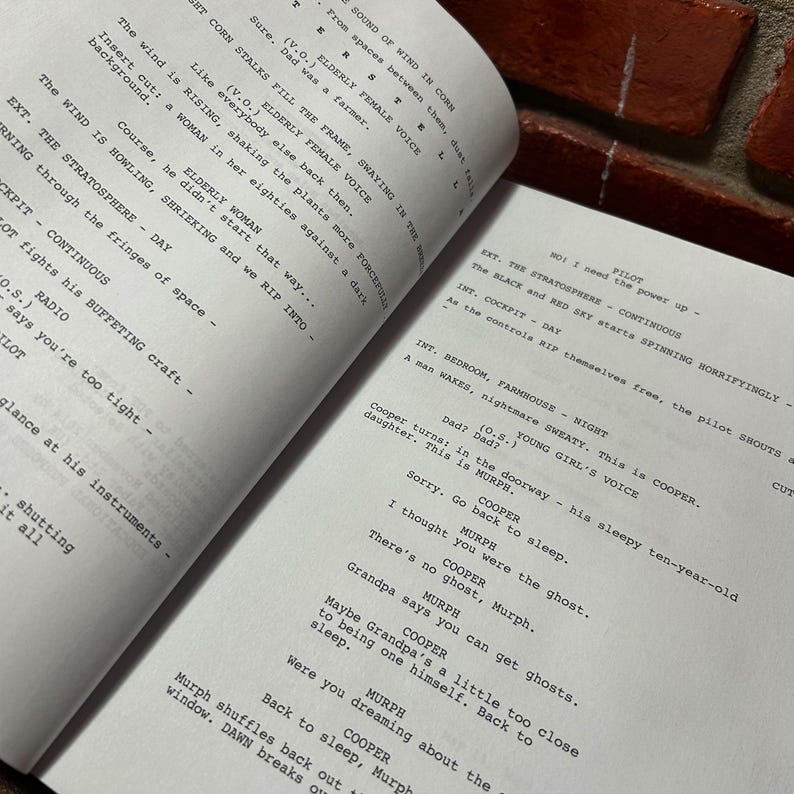 SOUND OF WIND IN CORN
From spaces between them, dust falls,
T E R S T E L L A
IGHT CORN STALKS FILL THE FRAME SWAYING IN THE
(V.O.) ELDERLY FEMALE VOICE
Sure. Dad was a farmer.
(V.O.) ELDERLY FEMALE VOICE
Like everybody else back then.
The wind is RISING, shaking the plants more FORCEFULLY.
Insert cut: a WOMAN in her eighties against a dark
background.
ELDERLY WOMAN
Course, he didn't start that way...
The WIND IS HOWLING, SHRIEKING and we RIP INTO -
EXT. THE STRATOSPHERE - DAY
RNING through the fringes of space -
OCKPIT - CONTINUOUS
LOT fights his BUFFETING craft -
(O.S.) RADIO
says you're too tight -
ILOT
glance at his instruments -
.. shutting
it all
PILOT
NO! I need the power up -
EXT. THE STRATOSPHERE - CONTINUOUS
The BLACK and RED SKY starts SPINNING HORRIFYINGLY -
INT. COCKPIT - DAY
As the controls RIP themselves free, the pilot SHOUTS a
-
CUT
INT. BEDROOM, FARMHOUSE - NIGHT
A man WAKES, nightmare SWEATY. This is COOPER.
(O.S.) YOUNG GIRL'S VOICE
Dad? Dad?
Cooper turns: in the doorway - his sleepy ten-year-old
daughter. This is MURPH.
COOPER
Sorry. Go back to sleep.
MURPH
I thought you were the ghost.
COOPER
There's no ghost, Murph.
MURPH
Grandpa says you can get ghosts.
COOPER
Maybe Grandpa's a little too close
to being one himself. Back to
sleep.
MURPH
Were you dreaming about the
COOPER
Back to sleep, Murph
Murph shuffles back out
window. DAWN breaks